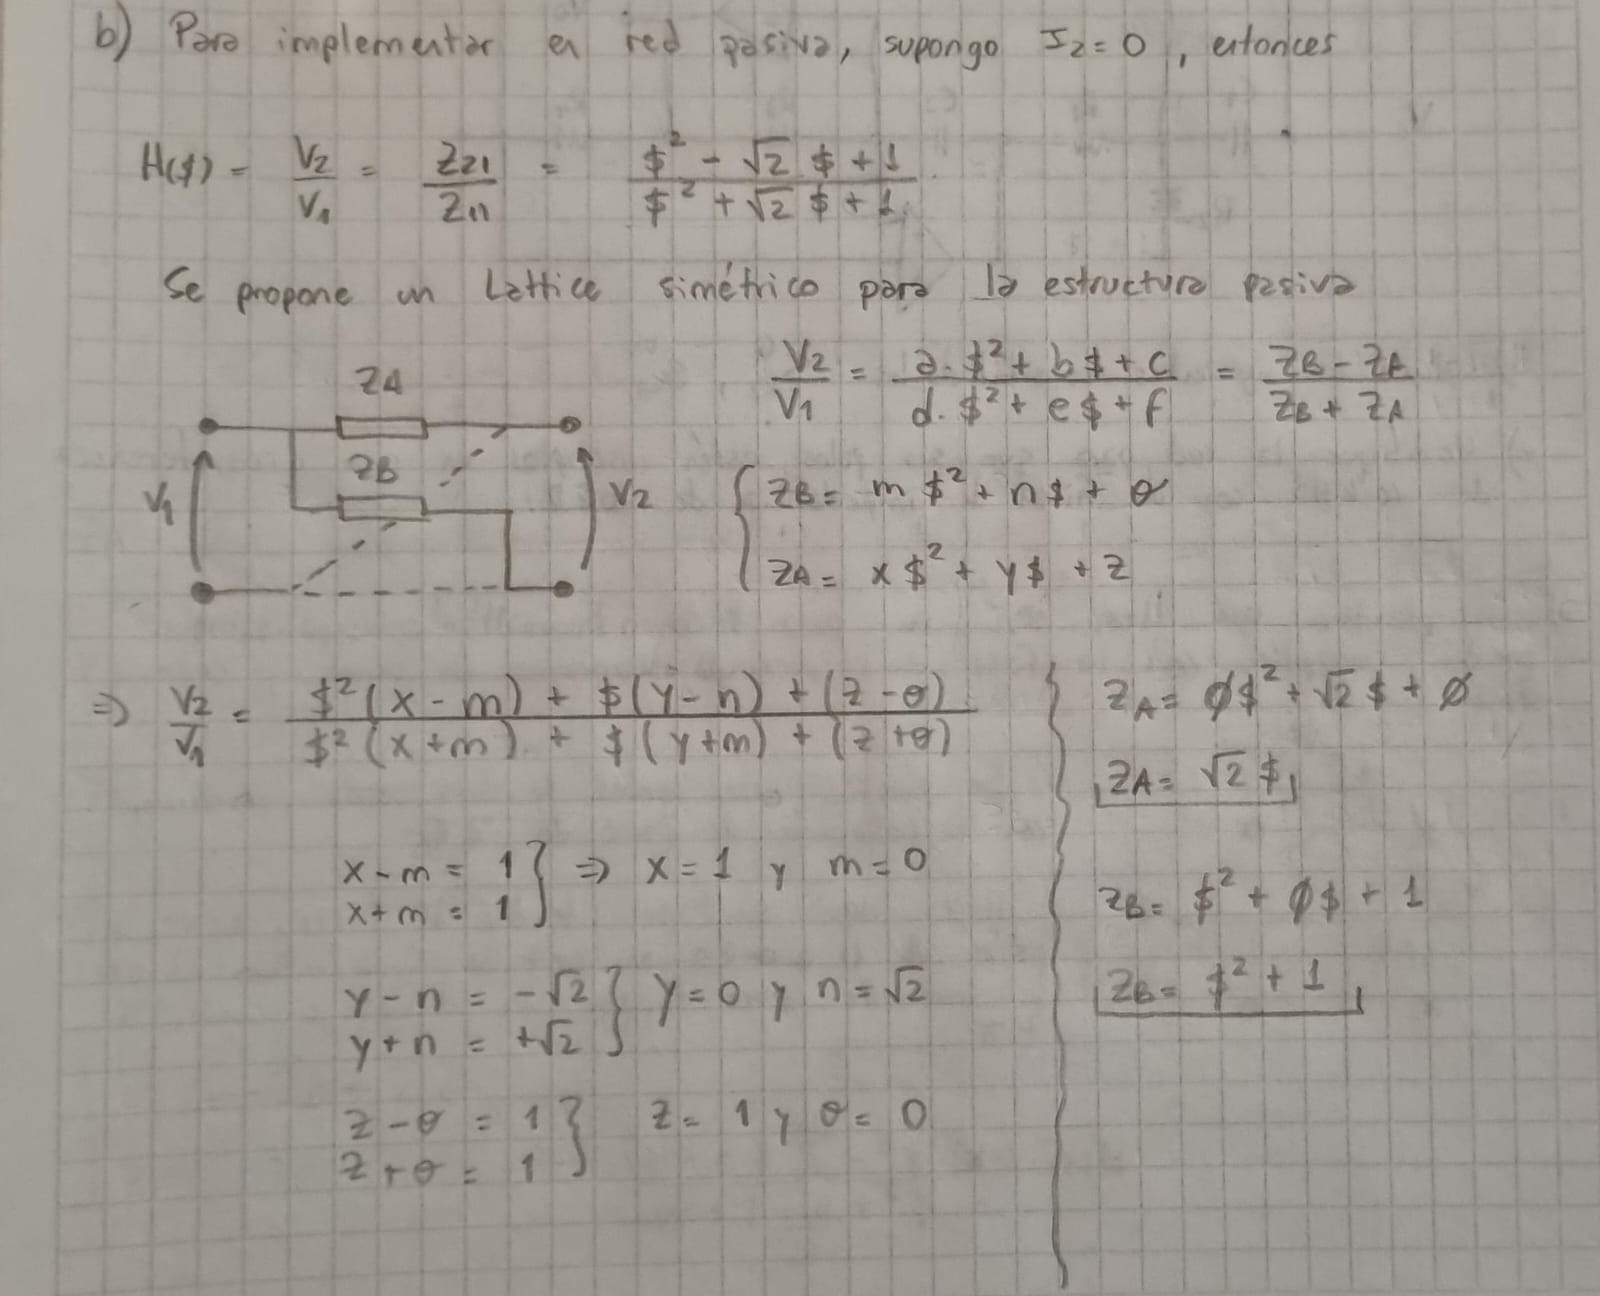 b) Para implementar en red pasiva, supongo I2=0, entonces
H($) = V2/V1 = Z21/Z11 = ($² - √2 $ + 1)/($² + √2 $ + 1)
Se propone un Lattice simétrico para la estructura pasiva
V2/V1 = (a.$² + b$ + c)/(d.$² + e$ + f) = (ZB - ZA)/(ZB + ZA)
ZA
ZB
V1
V2
ZB = m$² + n$ + σ
ZA = x$² + y$ + z
⇒ V2/V1 = ($²(x - m) + $(y - n) + (z - σ))/($²(x + m) + $(y + m) + (z + σ))
x - m = 1
x + m = 1 } ⇒ x = 1 y m = 0
y - n = -√2
y + n = +√2 } y = 0 y n = √2
z - σ = 1
z + σ = 1 } z = 1 y σ = 0
ZA = ∅$² + √2 $ + ∅
ZA = √2 $
ZB = $² + ∅$ + 1
ZB = $² + 1